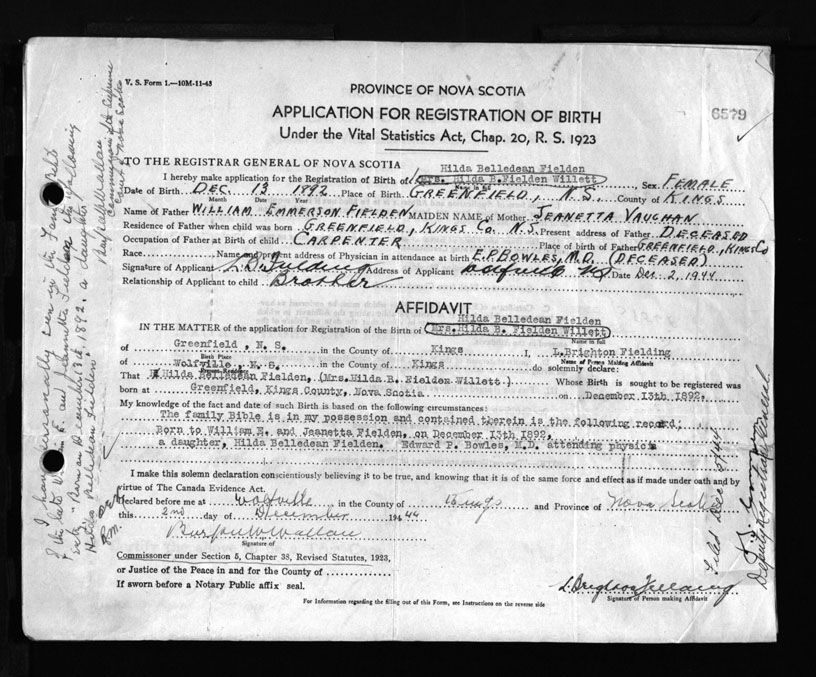 V. S. Form 1.—10M-11-43
PROVINCE OF NOVA SCOTIA
6579
APPLICATION FOR REGISTRATION OF BIRTH
Under the Vital Statistics Act, Chap. 20, R. S. 1923
TO THE REGISTRAR GENERAL OF NOVA SCOTIA
Hilda Belledean Fielden
I hereby make application for the Registration of Birth of Mrs. Hilda B.Fielden Willett Sex FEMALE
Name in full
Date of Birth DEC. 13 1892 Place of Birth GREENFIELD, N.S. County of KINGS
Month Date Year
Name of Father WILLIAM EMMERSON FIELDEN MAIDEN NAME of Mother JEANETTA VAUGHAN
Residence of Father when child was born GREENFIELD, KINGS CO. N.S. Present address of Father DECEASED
Occupation of Father at Birth of child CARPENTER Place of birth of Father GREENFIELD, KINGS CO
Race Name and present address of Physician in attendance at birth E.P. BOWLES, M.D. (DECEASED)
Signature of Applicant Address of Applicant Wolfville NS Date Dec 2, 1944
Relationship of Applicant to child Brother
AFFIDAVIT
Hilda Belledean Fielden
IN THE MATTER of the application for Registration of the Birth of Mrs.Hilda B. Fielden Willett
Name in full
of Greenfield , N. S. in the County of Kings I, L.Brighton Fielding
Birth Place Name of Person Making Affidavit
of Wolfville , N.S. in the County of Kings do solemnly declare:
Present Residence
That Hilda Belledean Fielden, (Mrs.Hilda B. Fielden Willett ) Whose Birth is sought to be registered was
born at Greenfield, Kings County, Nova Scotia on December 13th 1892,
My knowledge of the fact and date of such Birth is based on the following circumstances:
The family Bible is in my possession and contained therein is the following record;
Born to William E. and Jeanetta Fielden, on December 13th 1892,
a daughter, Hilda Belledean Fielden. Edward P. Bowles, M.D. attending physici
I make this solemn declaration conscientiously believing it to be true, and knowing that it is of the same force and effect as if made under oath and by
virtue of The Canada Evidence Act.
Declared before me at Wolfville in the County of Kings and Province of Nova Scotia
this 2nd day of December 1944
Signature of
Commissoner under Section 5, Chapter 38, Revised Statutes, 1923,
or Justice of the Peace in and for the County of
If sworn before a Notary Public affix seal.
L. Brighton Fielding
Signature of Person making Affidavit
For Information regarding the filling out of this Form, see Instructions on the reverse side
I have personally seen in the Family Bible
of the late William E. and Jeannetta Fielden the following
"Born on December 13th 1892. a daughter
Hilda Belledean Fielden"
Commissioner of the Supreme
Court of Nova Scotia
Filed Dec 5/44
Deputy Registrar General